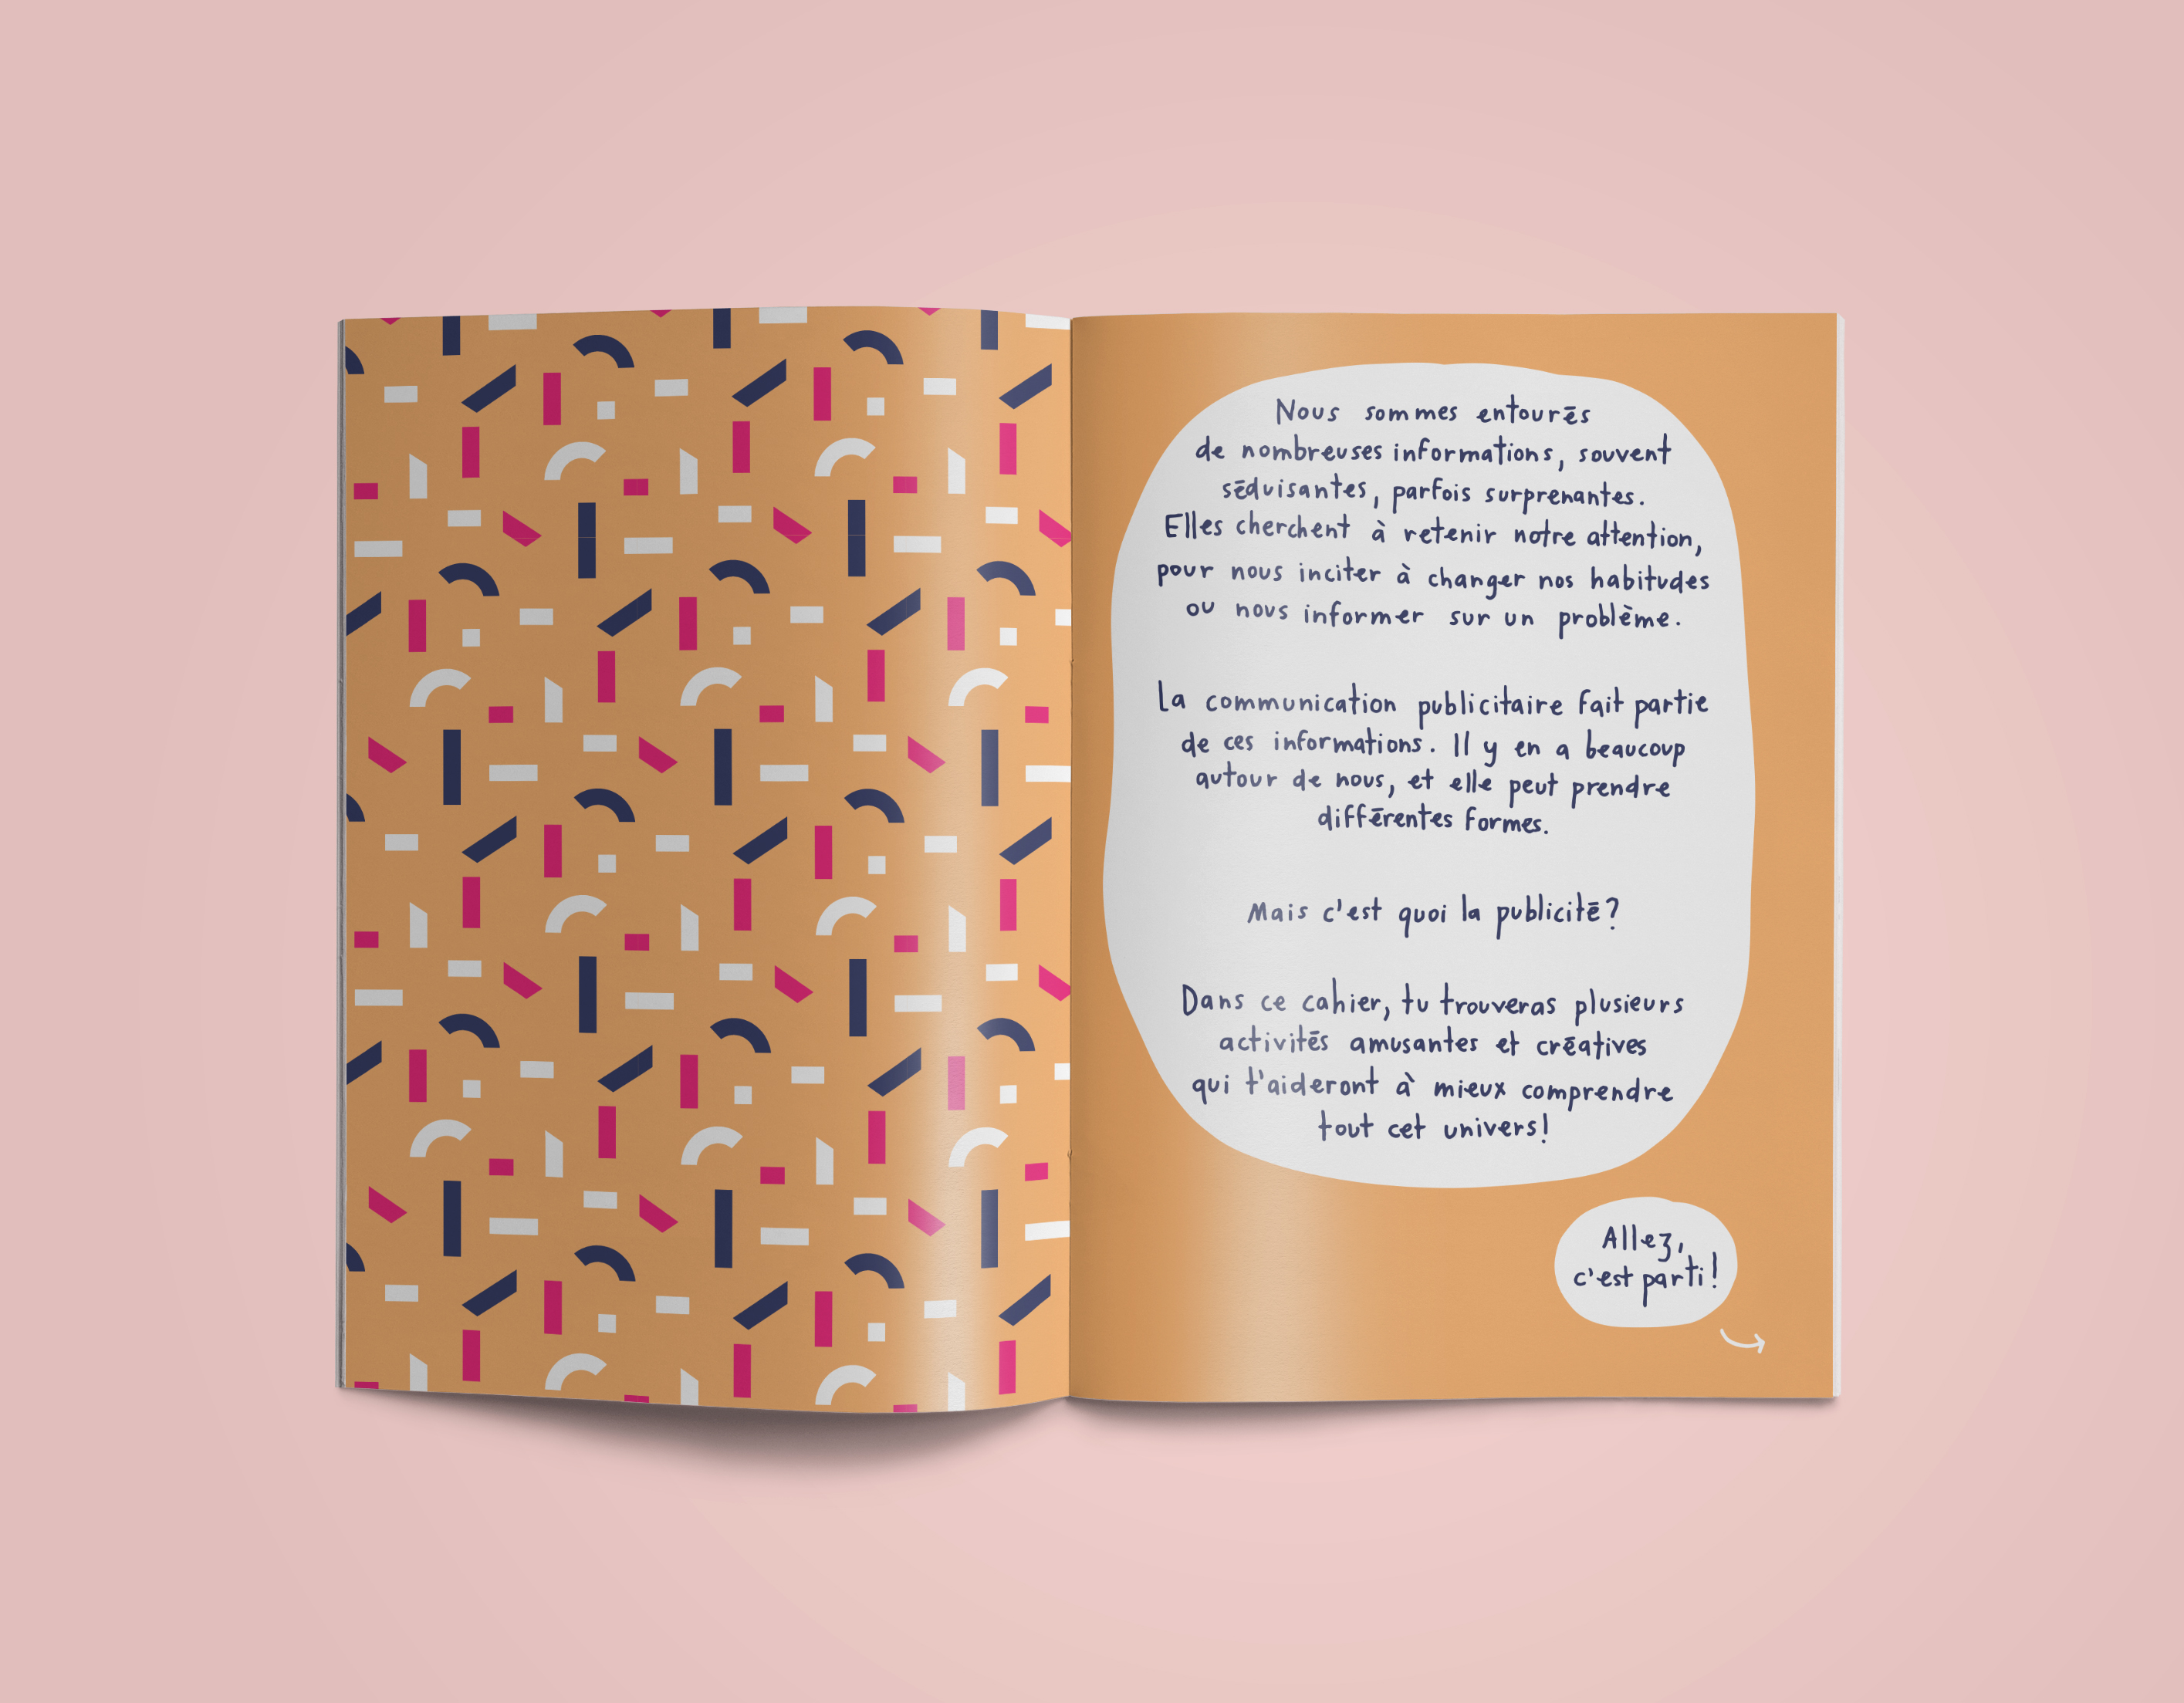 Nous sommes entourés
de nombreuses informations, souvent
séduisantes, parfois surprenantes.
Elles cherchent à retenir notre attention,
pour nous inciter à changer nos habitudes
ou nous informer sur un problème.
La communication publicitaire fait partie
de ces informations. Il y en a beaucoup
autour de nous, et elle peut prendre
différentes formes.
Mais c'est quoi la publicité?
Dans ce cahier, tu trouveras plusieurs
activités amusantes et créatives
qui t'aideront à mieux comprendre
tout cet univers!
Allez,
c'est parti!